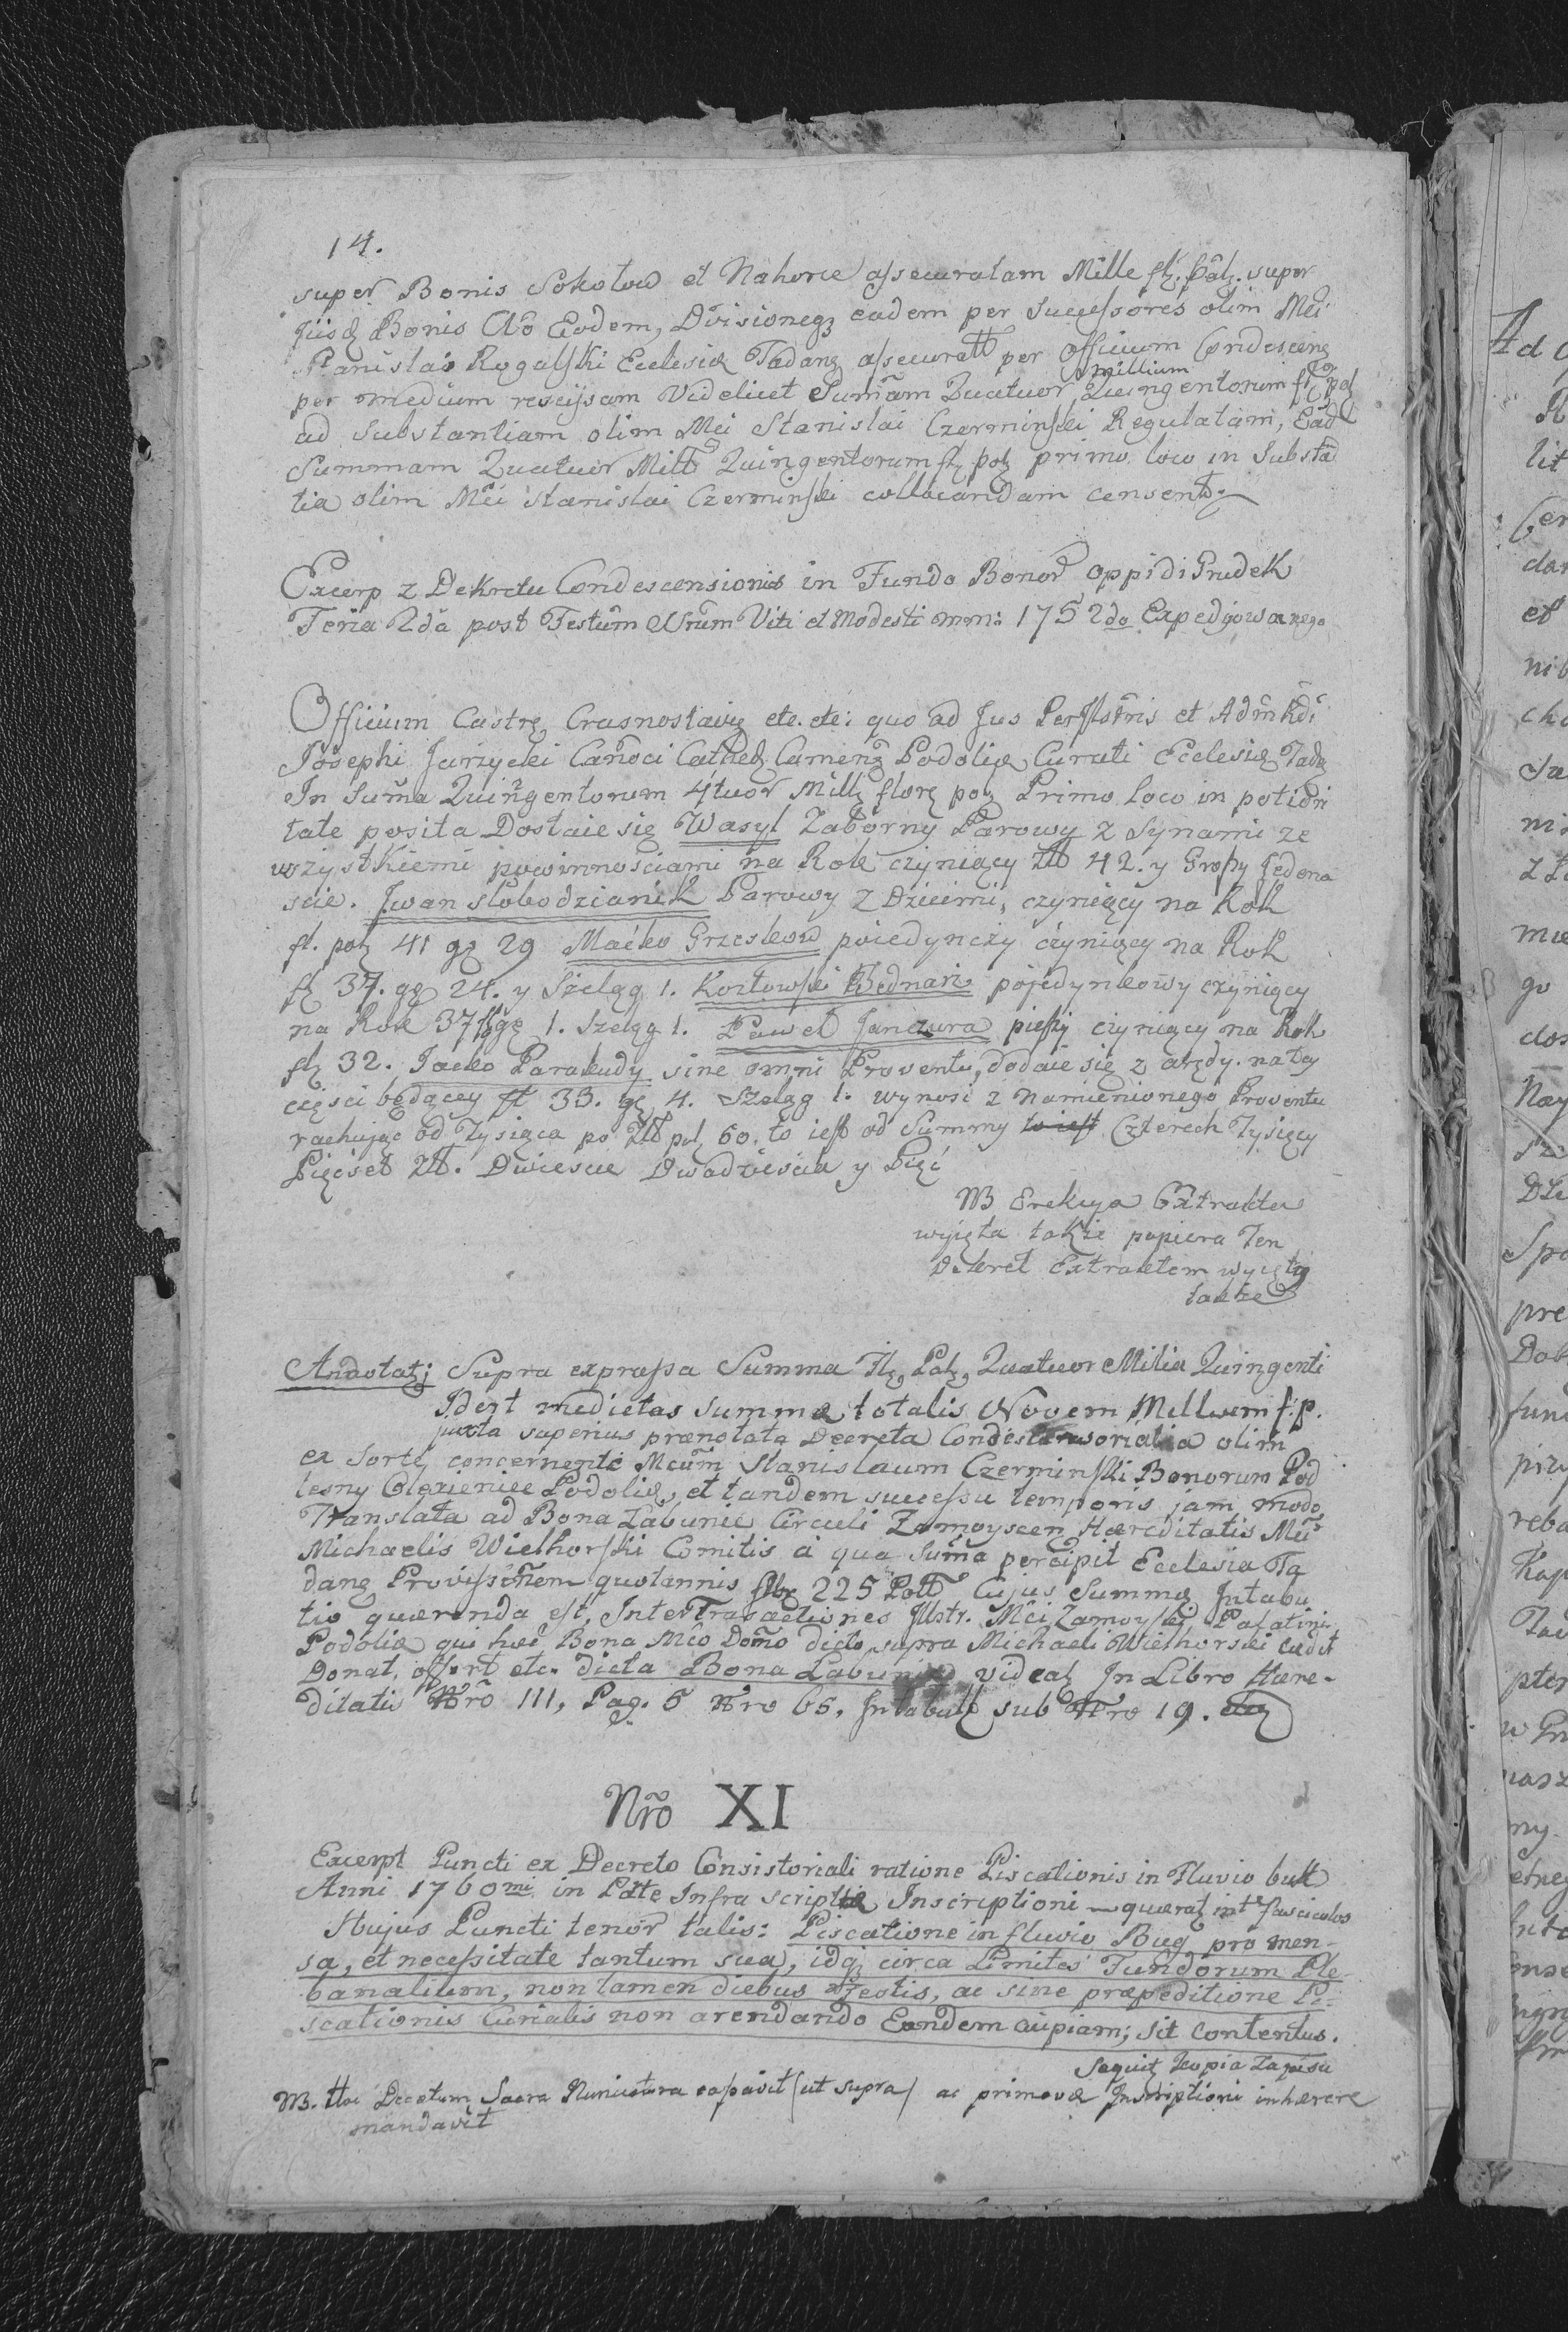 14.
super Bonis Sokołow et Nahorce assecuratam Mille fl. Pol. super
iisd Bonis Ao Eodem, Divisioneq eadem per Successores olim Mci
Stanislai Rogalski Ecclesiæ Tadanę assecurat per Officium Condescenę
millium
per medium rescissam Videlicet Sumam Quatuor Quingentorum fl pol
ad Substantiam olim Mci Stanislai Czerminski Regulatam, Ead
Summam Quatuor Mill Quingentorum fl pol primo loco in Substa
tia olim Mci Stanislai Czerminski collocandam censent.
Excerp z Dekretu Condescensionis in Fundo Bonor oppidi Grudek
Feria 2da post Festum Srum Viti et Modesti mm: 1752do Expedyowanego
Officium Castrę Crasnostavię etc. etc: quo ad Jus Per Illstris et Admkdi
Josephi Jarzycki Canoci Cathed Camenę Podoliæ Curati Ecclesiæ Tadę
In Suma Quingentorum 4tuor Mille florę pol Primo Loco in potiori
tate posita Dostaie się Wasyl Zaborny Parowy z Synami ze
wszystkiemi powinnosciami na Rok czyniący zł 42. y Groszy Jedena
scie. Jwan Słobodzianik Parowy z Dziecmi, czyniący na Rok
fl. pol 41 gę 29 Maćko Grzeskow poiedynczy czyniący na Rok
fl 37. gę 24. y Szeląg 1. Kozłowski Bednarz pojedynkowy czyniący
na Rok 37 fl gę 1. Szelgę 1. Paweł Janczura pieszy czyniący na Rok
fl 32. Jacko Parakudy sine omni Proventu, dodaie się z arędy na tey
cięsci będącey fł 33. gę 4. Szeląg 1. wynosi z Namienionego Proventu
rachując od Tysiąca po Zł pol 60. to iest od Summy to iest Czterech Tysięcy
Pięćset Zł. Dwiescie Dwadziescia y Pięć
NB Erekcya Extraktu
wyięta takze papiera Ten
Dekret Extraktem wyięty
także
Annotat; Supra expressa Summa Fl, Pol, Quatuor Milia Quingenti
Idest medietas Summæ totalis Novem Millium f. p.
juxta superius prænotata Decreta Condescensorialia olim
ex Sorte concernente Mcum Stanislaum Czerminski Bonorum Pod
lesny Olexieniec Podoliæ, et tandem successu temporis jam modo
Translata ad Bona Łabunie Circuli Zamoyscen Hæreditatis Mci
Michaelis Wielhorski Comitis a qua Suma percipit Ecclesia Ta
danę Provisionem quotannis flor 225 Poll Cujus Summæ Intabu
tio quærenda est, Inter Transactiones Illstr. Mci Zamoyski Palatini
Podoliæ qui hæc Bona Mco Domo dicto supra Michaeli Wielhorski cedit
Donat, offert etc. dicta Bona Łabunie videat In Libro Hære-
ditatis Nro III, Pag. 5 Nro 65, Intabul sub Nro 19.
Nro XI
Excerpt Puncti ex Decreto Consistoriali ratione Piscationis in Fluvio buk
Anni 1760mi in Pdte Infra scriptæ Inscriptioni quærat int fasciculos
Hujus Puncti tenor talis: Piscatione in fluvio Bug pro men-
sa, et necessitate tantum sua, idq circa Limites Fundorum Ple-
banalium, non tamen diebus Festis, ac sine præpeditione Pi-
scationis Curialis non arendando Eandem cuipiam; sit contentus.
Sequit kopia Zapisu
NB. Hoc Decretum Sacra Nunciatura cassavit (ut supra) ac primævæ Inscriptioni inhærere
mandavit